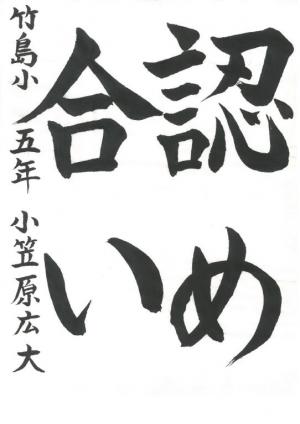 認め
合い
竹島小 五年 小笠原広大